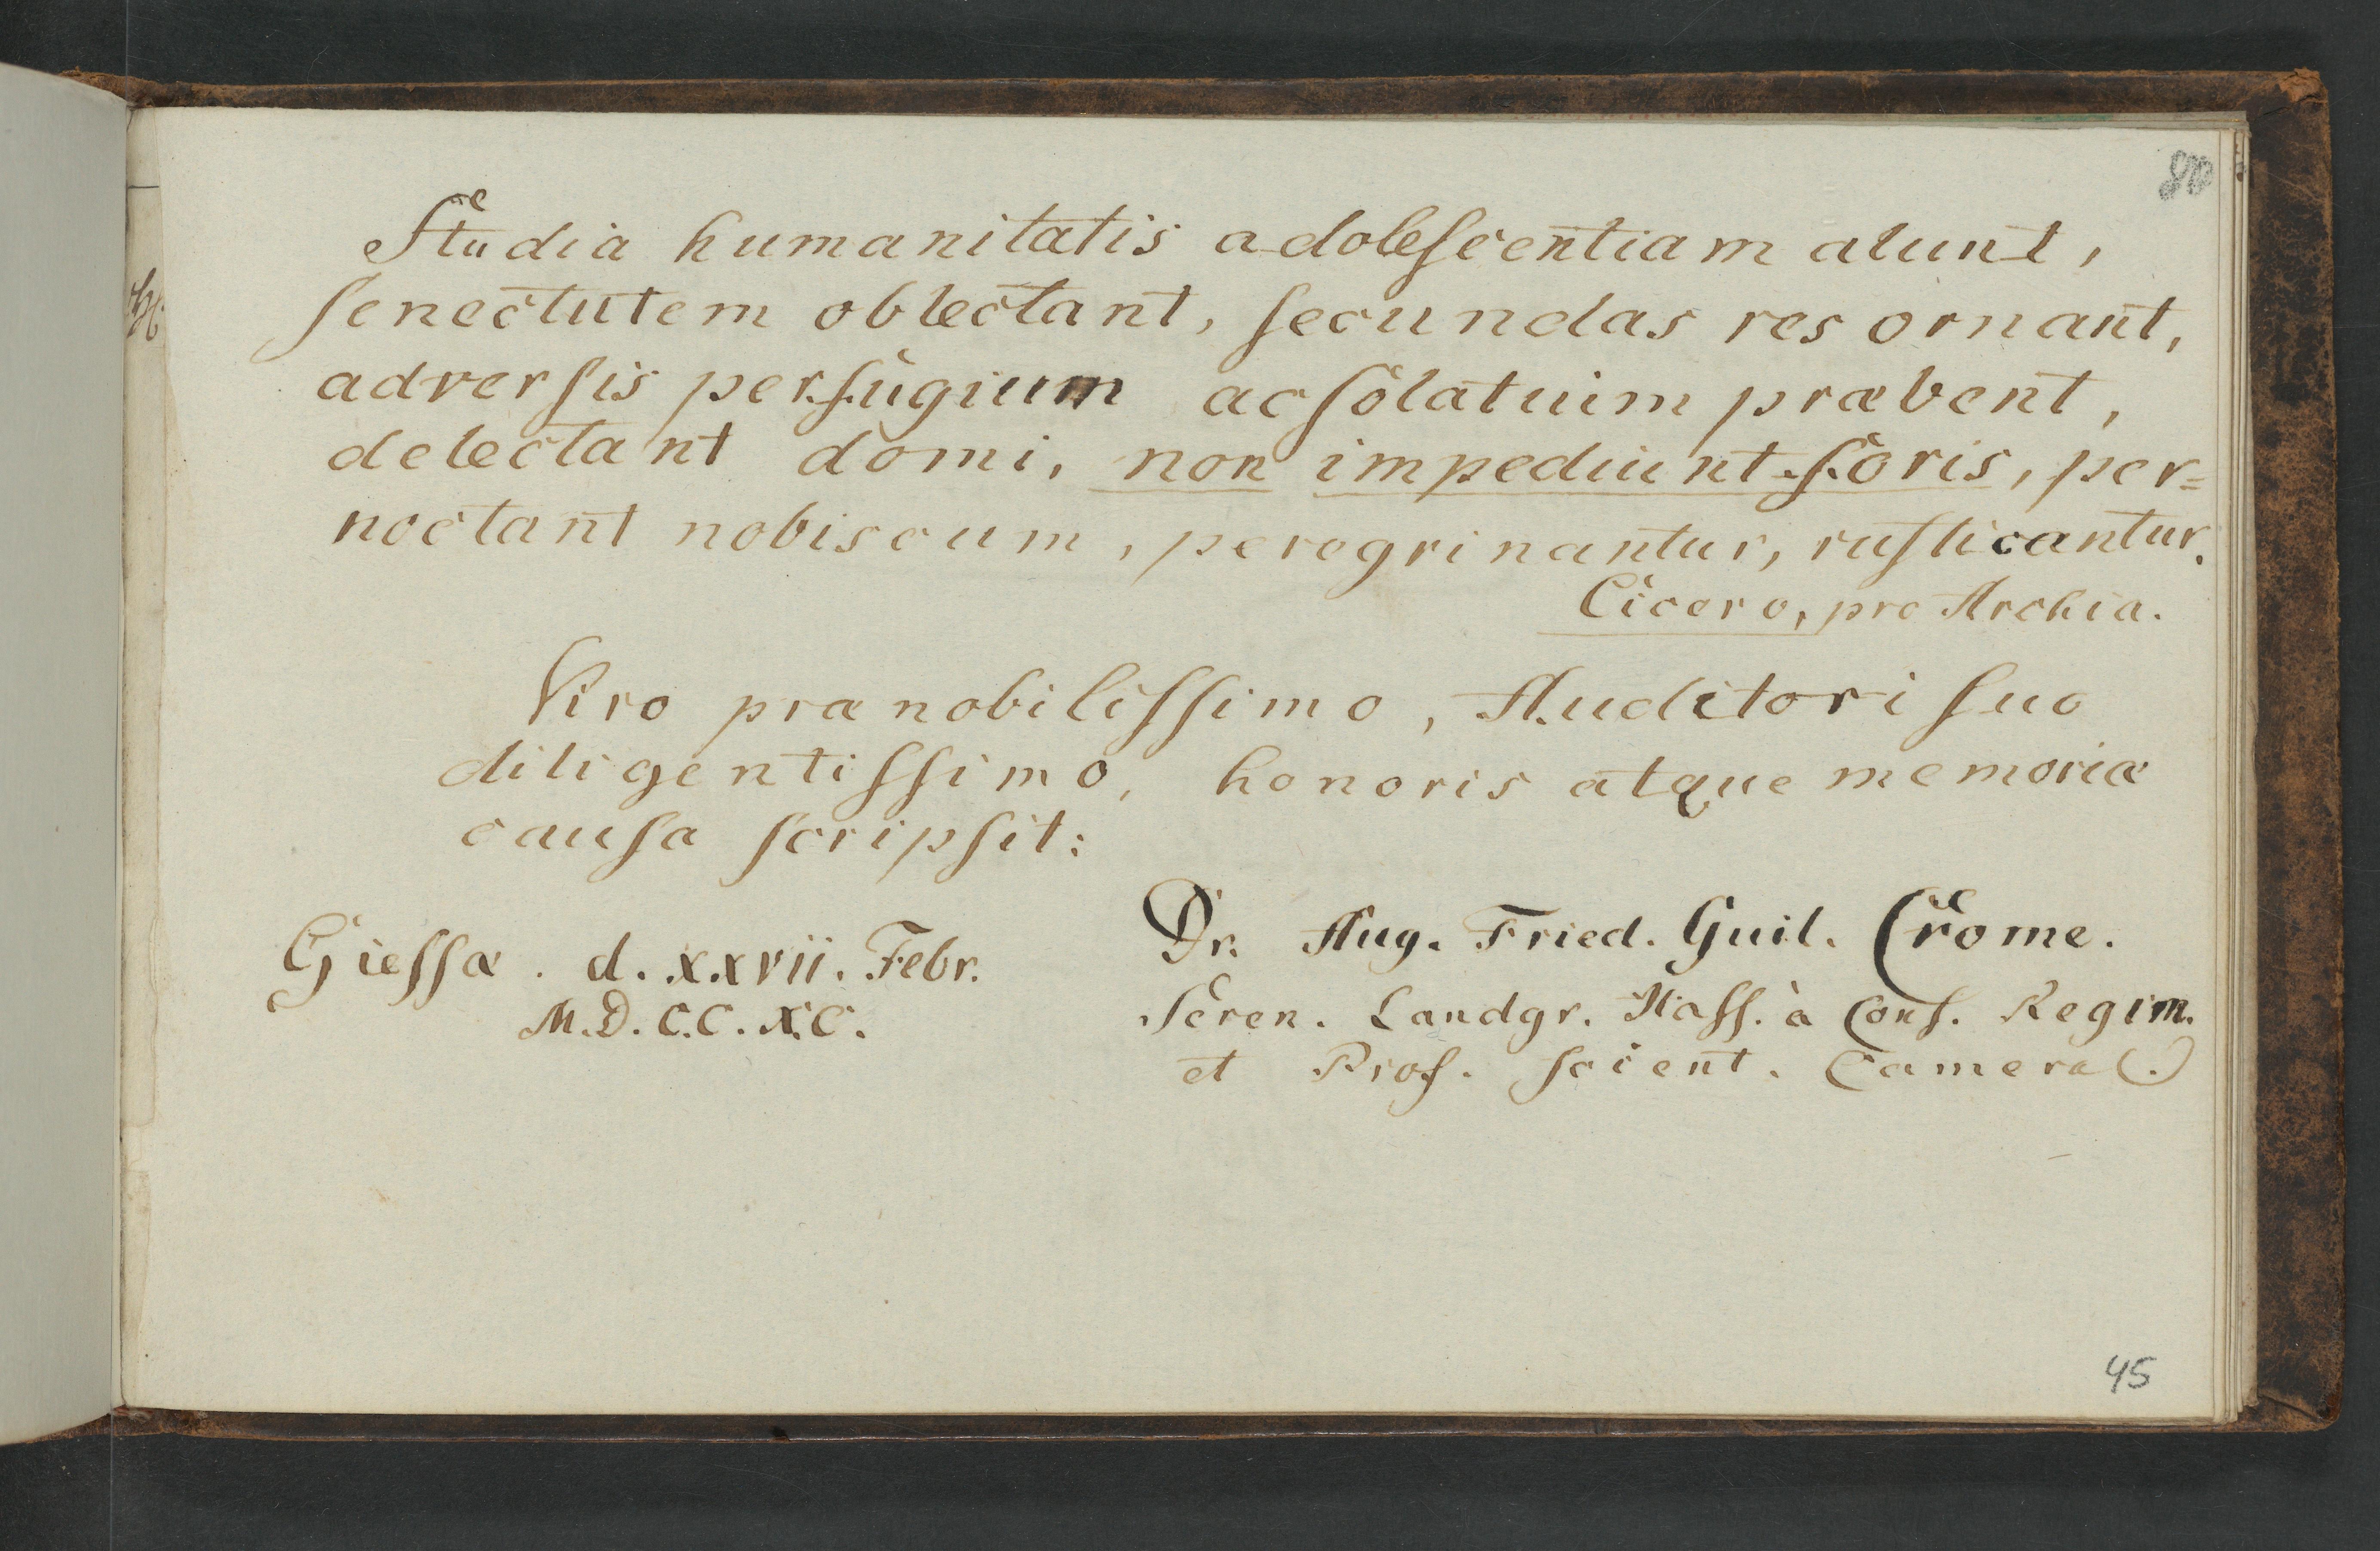 80
Studia humanitatis adoleſcentiam alunt,
ſenectutem oblectant, ſecundas res ornant,
adverſis perfugium ac ſolatuim præbent,
delectant domi, non impediunt foris, per=
noctant nobiscum, peregrinantur, ruſticantur.
Cicero, pro Archia.
Viro prænobiliſſimo, Auditori ſuo
diligentiſſimo, honoris atque memoriæ
cauſa ſcripſit:
Gieſſæ. d. xxvii. Febr.
M.D.C.C.XC.
Dr. Aug. Fried. Guil. Crome.
Seren. Landgr. Haſſ. à Conſ. Regim.
et Prof. ſcient. Cameral.
45